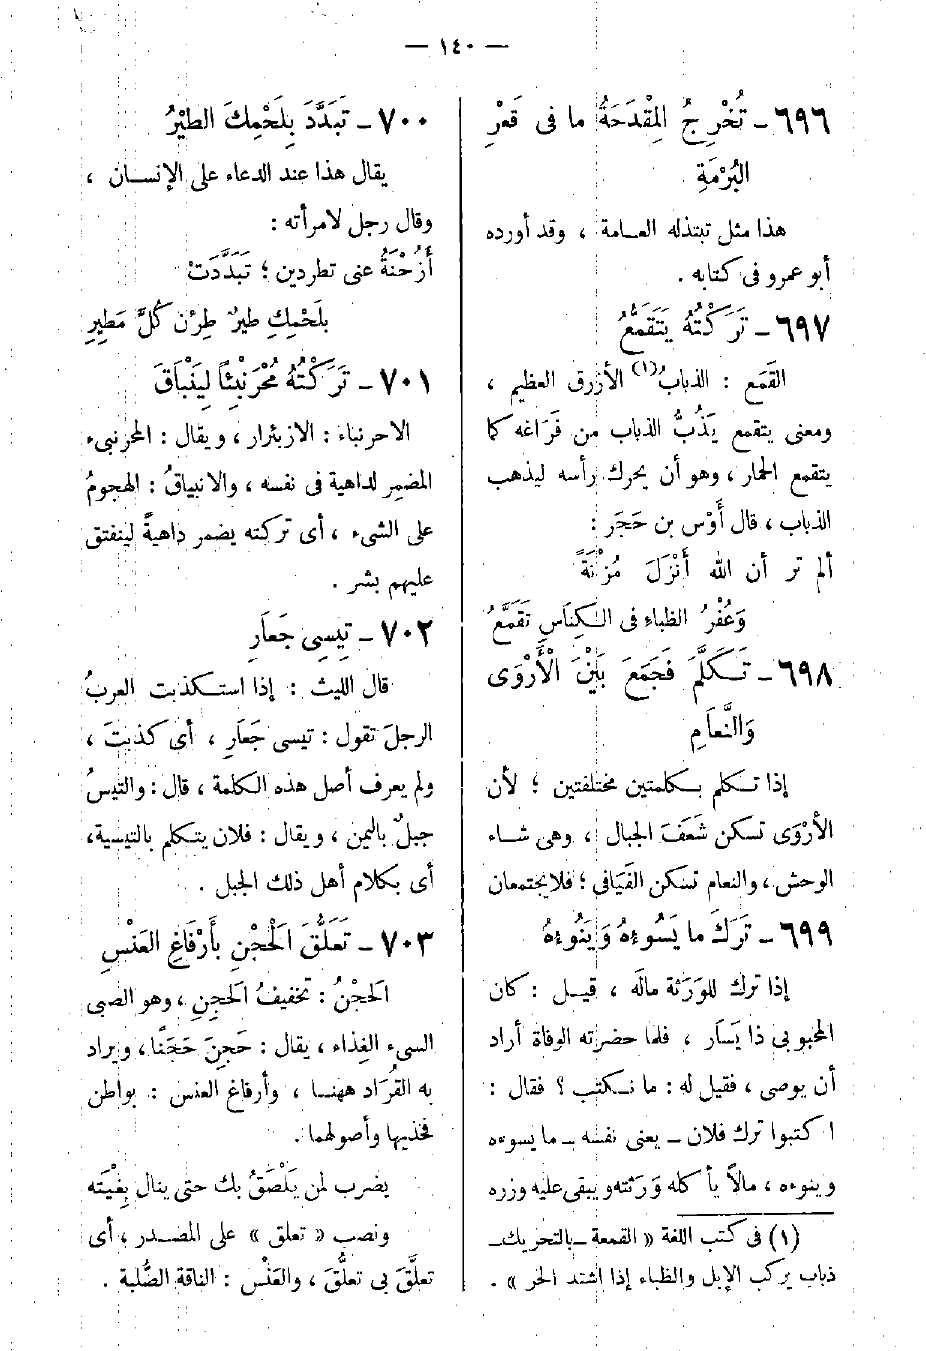 — ١٤٠ —
٦٩٦ - تُخْرِجُ المِقْدَحَةُ ما فى قَعْرِ
البُرْمَةِ
هذا مثل تبتذله العامة ، وقد أورده
أبو عمرو فى كتابه .
٦٩٧ - تَرَكْتُهُ يَتَقَمَّعُ
القَمَع : الذبابُ (١) الأزرق العظيم ،
ومعنى يتقمع يَذُبُّ الذباب من فَرَاغه كما
يتقمع الحمار ، وهو أن يحرك رأسه ليذهب
الذباب ، قال أَوْس بن حَجَر :
ألم تر أن الله أَنْزَلَ مُزْنَةً
وَعُفْرُ الظباءِ فى الكِنَاسِ تَقَمَّعُ
٦٩٨ - تَكَلَّمَ فَجَمَعَ بَيْنَ الْأَرْوَى
وَالنَّعَامِ
إذا تكلم بكلمتين مختلفتين ؛ لأن
الأرْوَى تسكن شَعَفَ الجبال ، وهى شاء
الوحش ، والنعام تسكن الفَيَافى ؛ فلا يجتمعان
٦٩٩ - تَرَكَ ما يَسُوءهُ وَيَنُوءهُ
إذا ترك للوَرَثة مالَه ، قيل : كان
المحبوبى ذا يَسَار ، فلما حضرته الوفاة أراد
أن يوصى ، فقيل له : ما نكتب ؟ فقال :
اكتبوا ترك فلان - يعنى نفسه - ما يسوءه
وينوءه ، مالاً يأكله وَرَثته ويبقى عليه وزره
(١) فى كتب اللغة « القمعة - بالتحريك -
ذباب يركب الإبل والظباء إذا اشتد الحر » .
٧٠٠ - تَبَدَّدَ بِلَحْمِكَ الطَيْرُ
يقال هذا عند الدعاء على الإنسان ،
وقال رجل لامرأته :
أَزُحْنَةُ عنى تطردين ؛ تَبَدَّدَتْ
بلَحْمِكِ طيرٌ طِرْنَ كُلَّ مَطِيرِ
٧٠١ - تَرَكْتُهُ مُحْرَنْبِئًا لِيَنْبَاقَ
الاحرنباء : الازبئرار ، ويقال : المحرنبىء
المضمِر لداهية فى نفسه ، والانبياقُ : الهجومُ
على الشىء ، أى تركته يضمر داهيةً لينفتق
عليهم بشر .
٧٠٢ - تِيسِى جَعَارِ
قال الليث : إذا استكذبت العربُ
الرجلَ تقول : تيسى جَعَارِ ، أى كذبتَ ،
ولم يعرف أصل هذه الكلمة ، قال : والتيسُ
جبلٌ باليمن ، ويقال : فلان يتكلم بالتيسية ،
أى بكلام أهل ذلك الجبل .
٧٠٣ - تَعَلُّقَ الْحَجْنِ بأَرْفَاغِ العَنْسِ
الحَجْنُ : تخفيفُ الحَجِنِ ، وهو الصبى
السىء الغِذاء ، يقال : حَجِنَ حَجَنًا ، ويراد
به القُرَاد ههنا ، وأرفاغ العنس : بواطن
فخذيها وأصولهما .
يضرب لمن يَلْصَقُ بك حتى ينال بِغْيَته
ونصب « تعلق » على المصدر ، أى
تعلَّقَ بى تعلُّقَ ، والعَنْس : الناقة الصُّلبة .